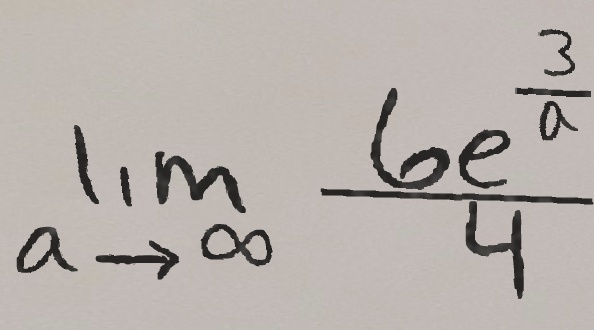 lim a → ∞ 6e^(3/a) / 4